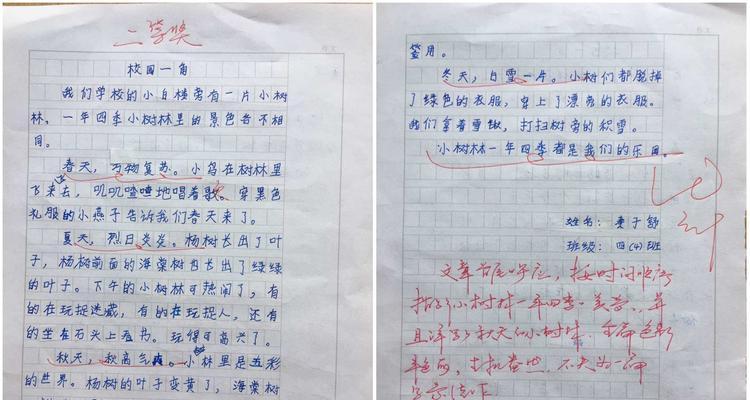 二等奖
校园一角
我们学校的小白楼旁有一片小树
林，一年四季小树林里的景色各不相
同。
春天，万物复苏。小鸟在树林里
飞来飞去，叽叽喳喳地唱着歌。穿黑色
礼服的小燕子告诉我们春天来了。
夏天，烈日炎炎。杨树长出了叶
子，杨树前面的海棠树也长出了绿绿
的叶子。下午的小树林可热闹了，有
的在玩捉迷藏，有的在玩捉人，还有
的坐在石头上看书。玩得可高兴了。
秋天，秋高气爽。小树林里是五彩
的世界。杨树的叶子变黄了，海棠树
签用。
冬天，白雪一片。小树们都脱掉
了绿色的衣服，穿上了漂亮的衣服。
我们拿着雪锹，打扫树旁的积雪。
小树林一年四季都是我们的乐园。
姓名：
子舒
班级：四（4）班
文章首尾呼应，按时间顺序
描写了小树林一年四季的美景，并
且详写了秋天的小树林。